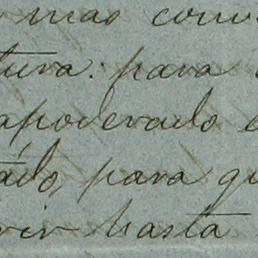 mas conv
tura: para
apoderado e
tado, para qu
vir hasta